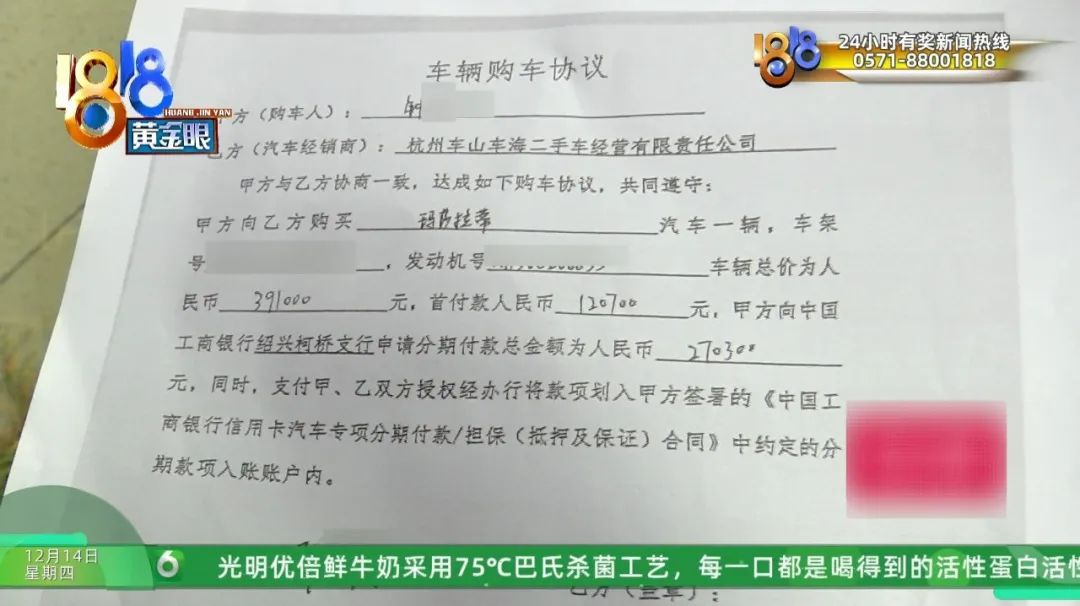 1818
HUANG JIN YAN
黄金眼
1818
24小时有奖新闻热线
0571-88001818
车辆购车协议
方（购车人）：
乙方（汽车经销商）：杭州车山车海二手车经营有限责任公司
甲方与乙方协商一致，达成如下购车协议，共同遵守：
甲方向乙方购买 玛莎拉蒂 汽车一辆，车架
号 ，发动机号 车辆总价为人
民币 391000 元，首付款人民币 120700 元，甲方向中国
工商银行绍兴柯桥支行申请分期付款总金额为人民币 270300
元，同时，支付甲、乙双方授权经办行将款项划入甲方签署的《中国工
商银行信用卡汽车专项分期付款/担保（抵押及保证）合同》中约定的分
期款项入账账户内。
12月14日
星期四
6
光明优倍鲜牛奶采用75℃巴氏杀菌工艺，每一口都是喝得到的活性蛋白活性
乙方（盖章）：